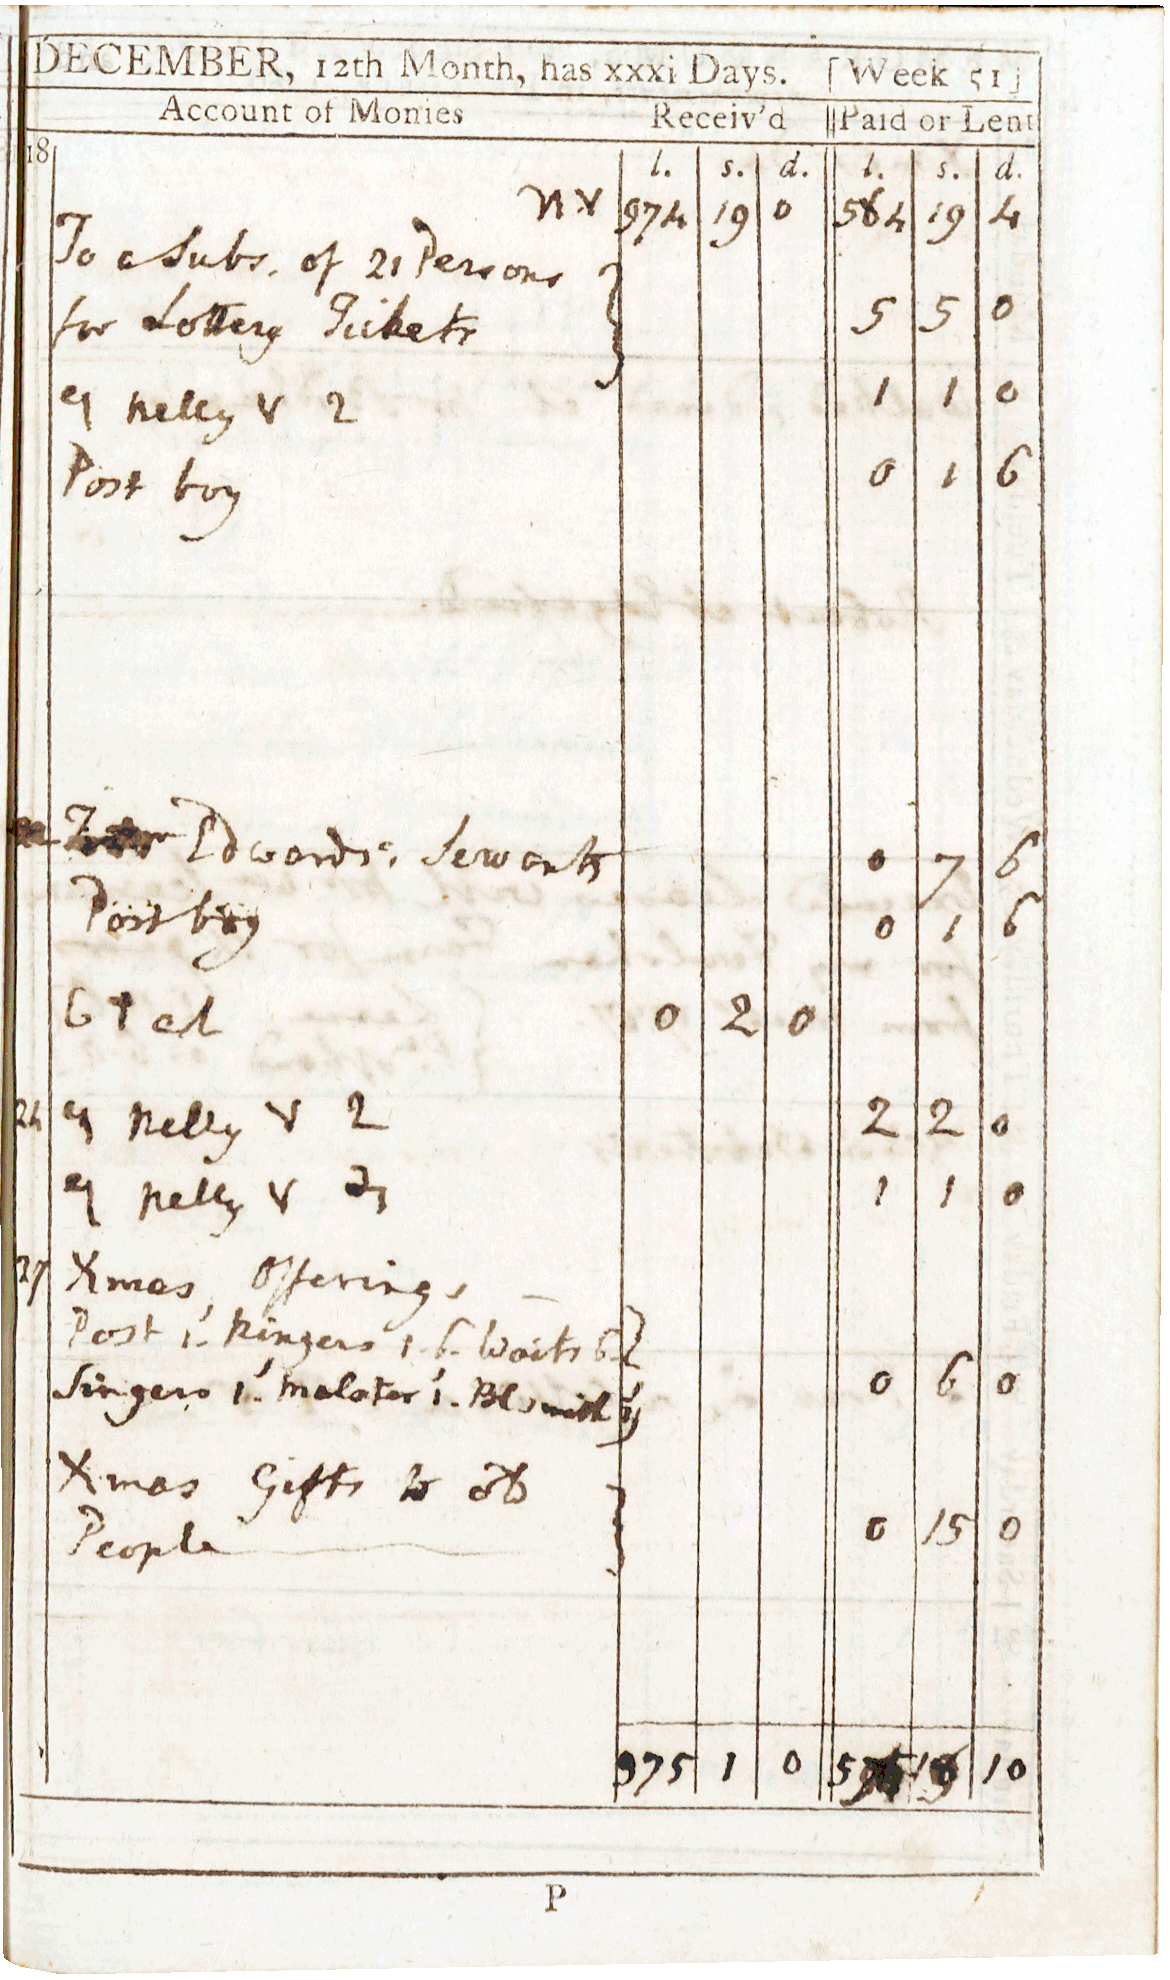 DECEMBER, 12th Month, has xxxi Days. [Week 51]
Account of Monies Receiv'd Paid or Lent
18 l. s. d. l. s. d.
974 19 0 564 19 4
To a Subs. of 21 Persons
for Lottery Tickets 5 5 0
Kelly V 2 1 1 0
Post boy 0 1 6
Edwards's Servants 0 7 6
Post boy 0 1 6
0 2 0
24 Kelly V 2 2 2 0
Kelly V 1 1 0
27 Xmas Offerings
Post 1. Ringers 1.6. Waits 6.
Singers 1. Malster 1. Blsmith 1 0 6 0
Xmas Gifts to
People 0 15 0
975 1 0 10
P